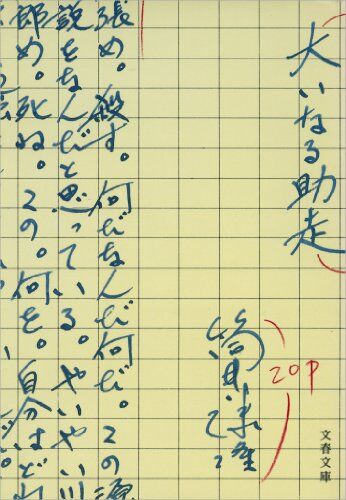 大いなる助走
筒井康隆
20P
文春文庫
張め。殺す。何だなんだ何だ。この
説をなんだと思っている。やいやい
郎め。死ね。この。何を。自分はど